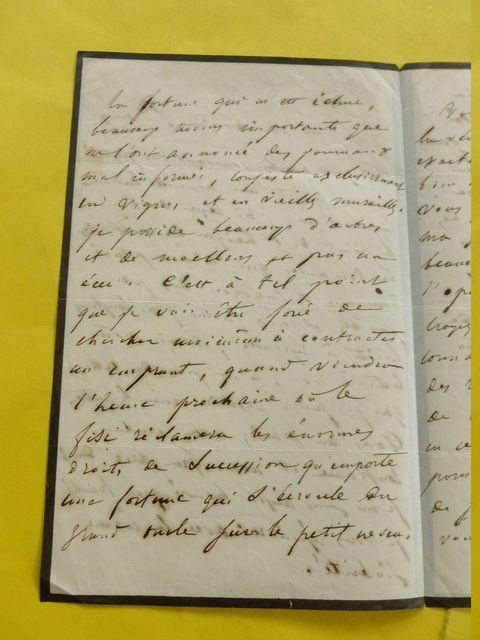 la fortune qui m'est échue,
beaucoup moins importante que
ne l'ont annoncé des journaux
mal informés, consiste exclusivement
en vignes et en vieilles murailles.
je possède beaucoup d'arbres
et de moellons et pas un
écu. C'est à tel point
que je vais être forcé de
chercher moi même à contracter
un emprunt, quand viendra
l'heure prochaine où le
fisc réclamera les énormes
droits de succession qu'emporte
une fortune qui s'écroule du
grand oncle sur le petit neveu.
la
vous
ma
beauc
l'
croyez
des
de
en ce
pour
de f
vou